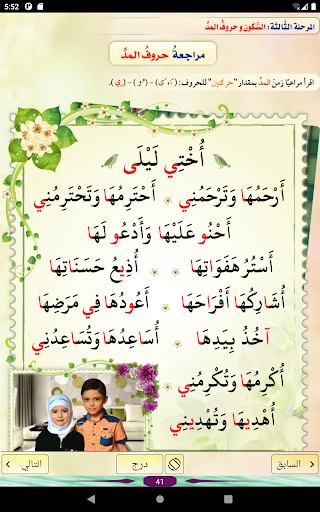 5:52
المرحلة الثالثة: السُّكون و حروفُ المدِّ
مراجعةُ حروفُ المدِّ
اقرأ مراعيًا زمنَ المدِّ بمقدار "حركتين" للحروف: ( ـَا ، ـَى ) - ( ـُو ) - ( ـِي ).
أُخْتِي لَيْلَى
أَرْحَمُهَا وَتَرْحَمُنِي أَحْتَرِمُهَا وَتَحْتَرِمُنِي
أَحْنُو عَلَيْهَا وَأَدْعُو لَهَا
أَسْتُرُ هَفَوَاتِهَا أُذِيعُ حَسَنَاتِهَا
أُشَارِكُهَا أَفْرَاحَهَا أَعُودُهَا فِي مَرَضِهَا
آخُذُ بِيَدِهَا أُسَاعِدُهَا وَتُسَاعِدُنِي
أُكْرِمُهَا وَتُكْرِمُنِي
أُهْدِيهَا وَتُهْدِينِي
السابق
درج
التالي
41